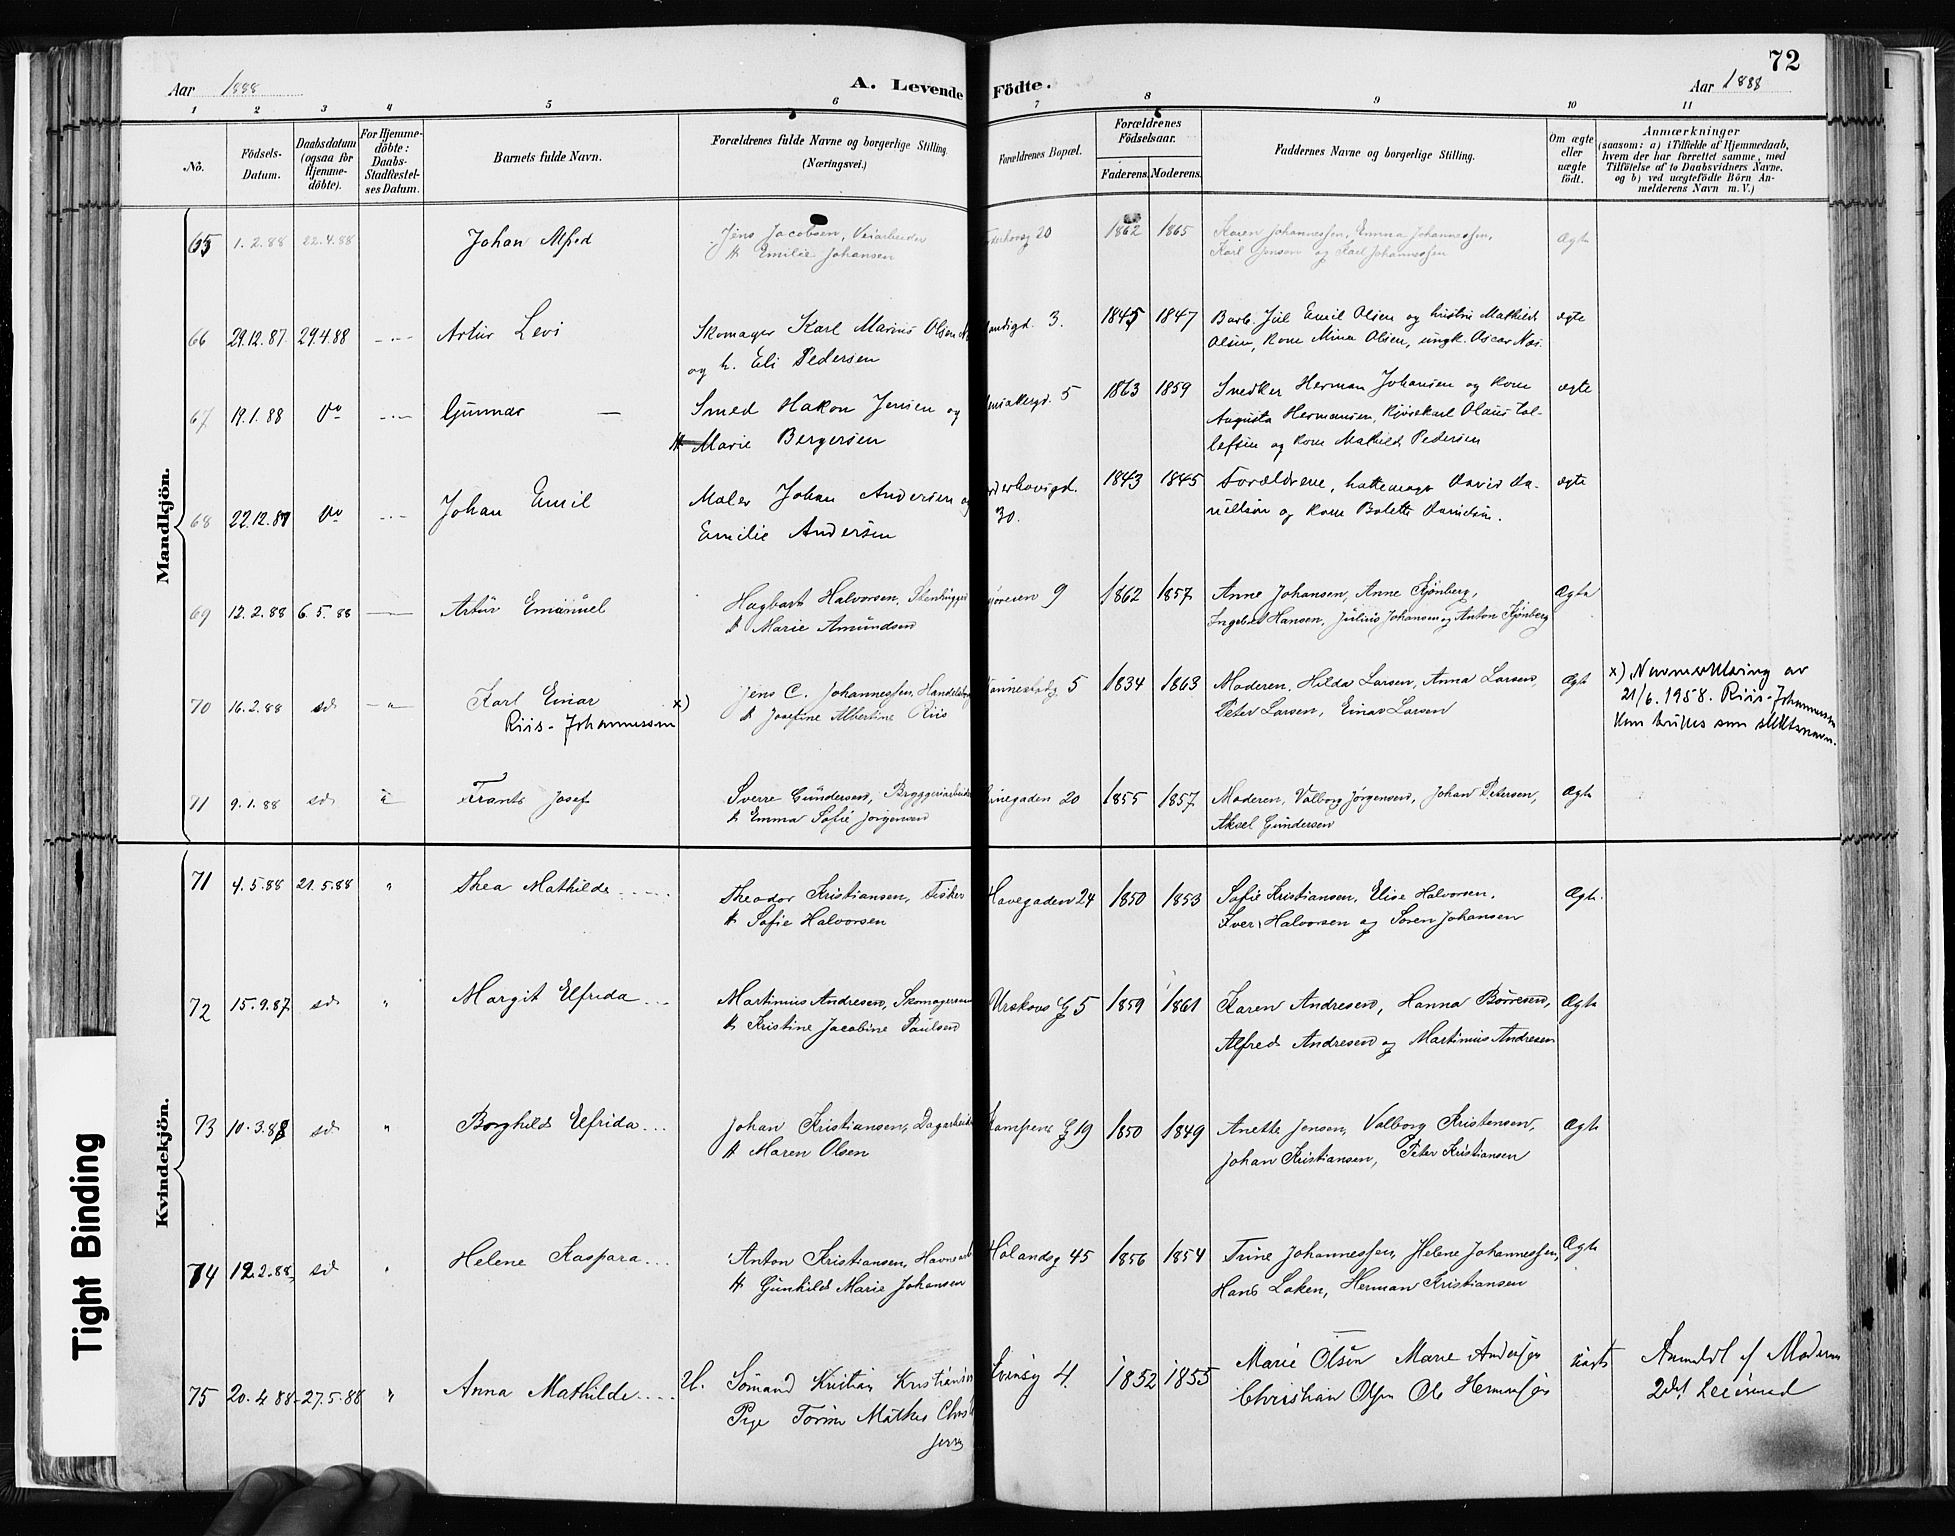 72
Aar 1888 A. Levende Fødte. Aar 1888
1 2 3 4 5 6 7 8 9 10 11
No.
Fødsels-
Datum.
Daabsdatum
(ogsaa for
Hjemme-
døbte).
For Hjemme-
døbte:
Daabs-
Stadfæstel-
ses Datum.
Barnets fulde Navn.
Forældrenes fulde Navne og borgerlige Stilling
(Næringsvei.)
Forældrenes Bopæl.
Forældrenes
Fødselsaar.
Faderens. Moderens.
Faddernes Navne og borgerlige Stilling.
Om ægte
eller
uægte
født.
Anmærkninger
(saasom: a) i Tilfælde af Hjemmedaab,
hvem der har forrettet samme, med
Tilføielse af to Daabsvidners Navne,
og b) ved uægtefødte Børn An-
melderens Navn m. V.)
Mandkjön.
65 1.2.88 22.4.88 Johan Alfred Jens Jacobsen, Veiarbeider 20 1862 1865 Karen Johannessen, Emma Johannessen, Ægte
H Emilie Johansen Karl Jensen og Karl Johannessen
66 29.12.87 29.4.88 Artur Levi Skomager Karl Marius Olsen 3. 1845 1847 Barb. Jul Emil Olsen og hustru Mathilde ægte
og h. Eli Pedersen Olsen, Kone Mina Olsen, ungk. Oscar Næs.
67 19.1.88 Do Gunnar — Smed Hakon Jensen og 5 1863 1859 Snedker Herman Johansen og Kone ægte
H Marie Bergersen Augusta Hermansen, Kjørekarl Olaus Tol-
lefsen og Kone Mathild. Pedersen
68 22.12.87 Do Johan Emil Maler Johan Andersen og 1843 1845 Forældrene, hattemager David Da- ægte
Emilie Andersen 30. nielsen og Kone Bolette Danielsen.
69 12.2.88 6.5.88 Artur Emanuel Hagbart Halvorsen, Stenhugger 9 1862 1857 Anne Johansen, Anne Kjønberg, Ægte
H Marie Amundsen Ingebret Hansen, Julius Johansen og Anton Kjønberg
70 16.2.88 sd Karl Einar x) Jens C. Johannessen, 5 1834 1863 Moderen, Hilda Larsen, Anna Larsen, Ægte x) Navneerklæring av
Riis-Johannessen H Josefine Albertine Riis Peter Larsen, Einar Larsen 21/6.1958. Riis-Johannessen
kan brukes som slektsnavn.
71 9.1.88 sd Frants Josef Sverre Gundersen, Bryggeriarbeider 20 1855 1857 Moderen, Valborg Jørgensen, Johan Petersen, Ægte
H Emma Sofie Jørgensen Aksel Gundersen
Kvindekjön.
71 4.5.88 21.5.88 " Thea Mathilde Theodor Kristiansen, Fisker Havegaden 24 1850 1853 Sofie Kristiansen, Elise Halvorsen, Ægte
H Sofie Halvorsen Iver Halvorsen og Søren Johansen
72 15.9.87 sd " Margit Elfrida Martinius Andresen, Skomagersvend 5 1859 1861 Karen Andresen, Hanna Børresen, Ægte
H Kristine Jacobine Paulsen Alfred Andresen og Martinius Andresen
73 10.3.88 sd " Borghild Elfrida Johan Kristiansen, Dagarbeider Kampens G 19 1850 1849 Anette Jensen, Valborg Kristensen, Ægte
H Maren Olsen Johan Kristiansen, Peter Kristiansen
74 12.2.88 sd " Helene Kaspara Anton Kristiansen, Havnearb Holandsg 45 1856 1854 Trine Johannessen, Helene Johannessen, Ægte
H Gunhild Marie Johansen Hans Loken, Herman Kristiansen
75 20.4.88 27.5.88 " Anna Mathilde U. Sømand Kristian Kristiansen Svinsg 4. 1852 1855 Marie Olsen Marie Andersen Uægte Anmeldt af Moderen
Pige Mathea Christian Olsen Ole Hermansen
Tight Binding